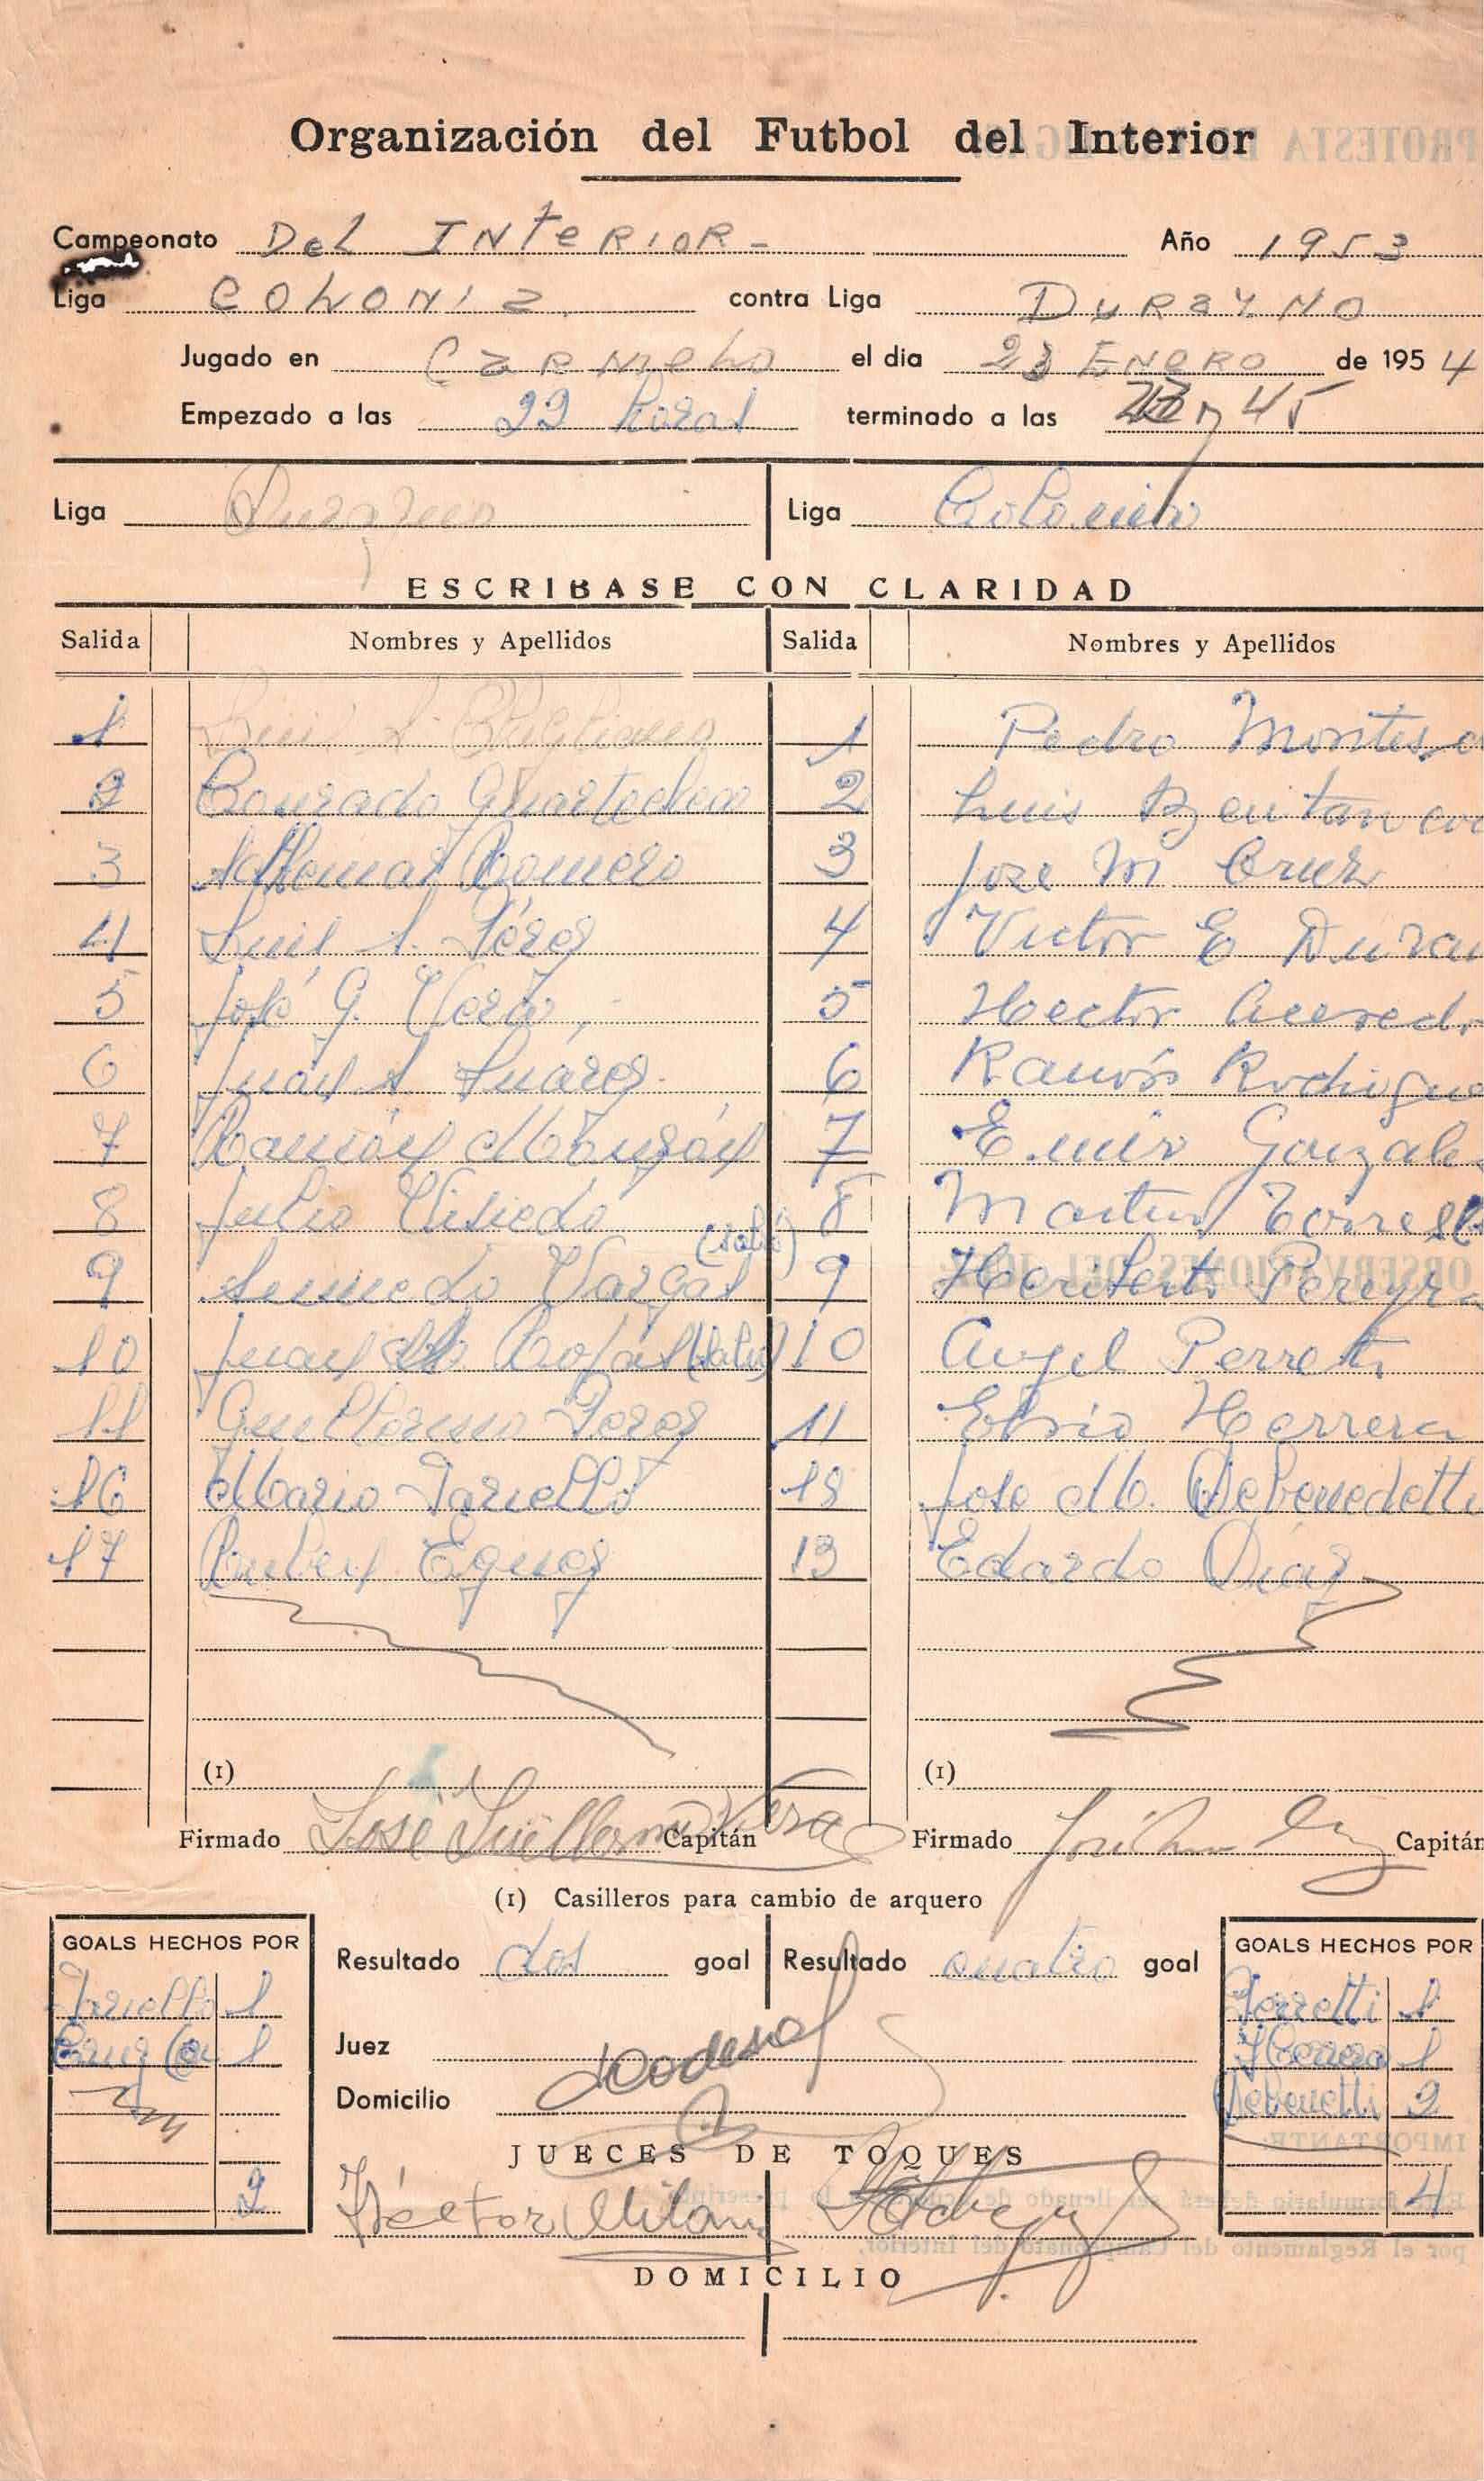 Organización del Futbol del Interior
Campeonato Del INterior - Año 1953
Liga COLONIA contra Liga DURAZNO
Jugado en CARMELO el dia 23 ENERO de 1954
Empezado a las 22 horas terminado a las 45
Liga Durazno Liga Colonia
ESCRIBASE CON CLARIDAD
Salida Nombres y Apellidos Salida Nombres y Apellidos
1 Luis A. 1 Pedro Montes d
2 Conrado 2 Luis Bentancu
3 Romero 3 Jose M Cruz
4 Luis A. Pérez 4 Victor E Duran
5 José G. Vera 5 Hector Acevedo
6 Juan A. Suárez 6 Ramón Rodrigue
7 Ramón 7 Emir Gonzale
8 Julio 8 Martin Torres
9 Vargas (salió) 9 Heriberto Pereyra
10 Juan Rojas (salió) 10 Angel Perretti
11 Guillermo Perez 11 Elvio Herrera
16 Mario Tariello 12 Jose M. Debenedetti
17 Ruben Eguez 13 Edardo Díaz
(1) (1)
Firmado José Guillermo Vera Capitán Firmado Capitán
(1) Casilleros para cambio de arquero
GOALS HECHOS POR GOALS HECHOS POR
Resultado dos goal Resultado cuatro goal
Tariello 1 Perretti 1
Cruz 1 Herrera 1
Juez
Domicilio
Debenetti 2
JUECES DE TOQUES
2 4
Héctor Milan
DOMICILIO